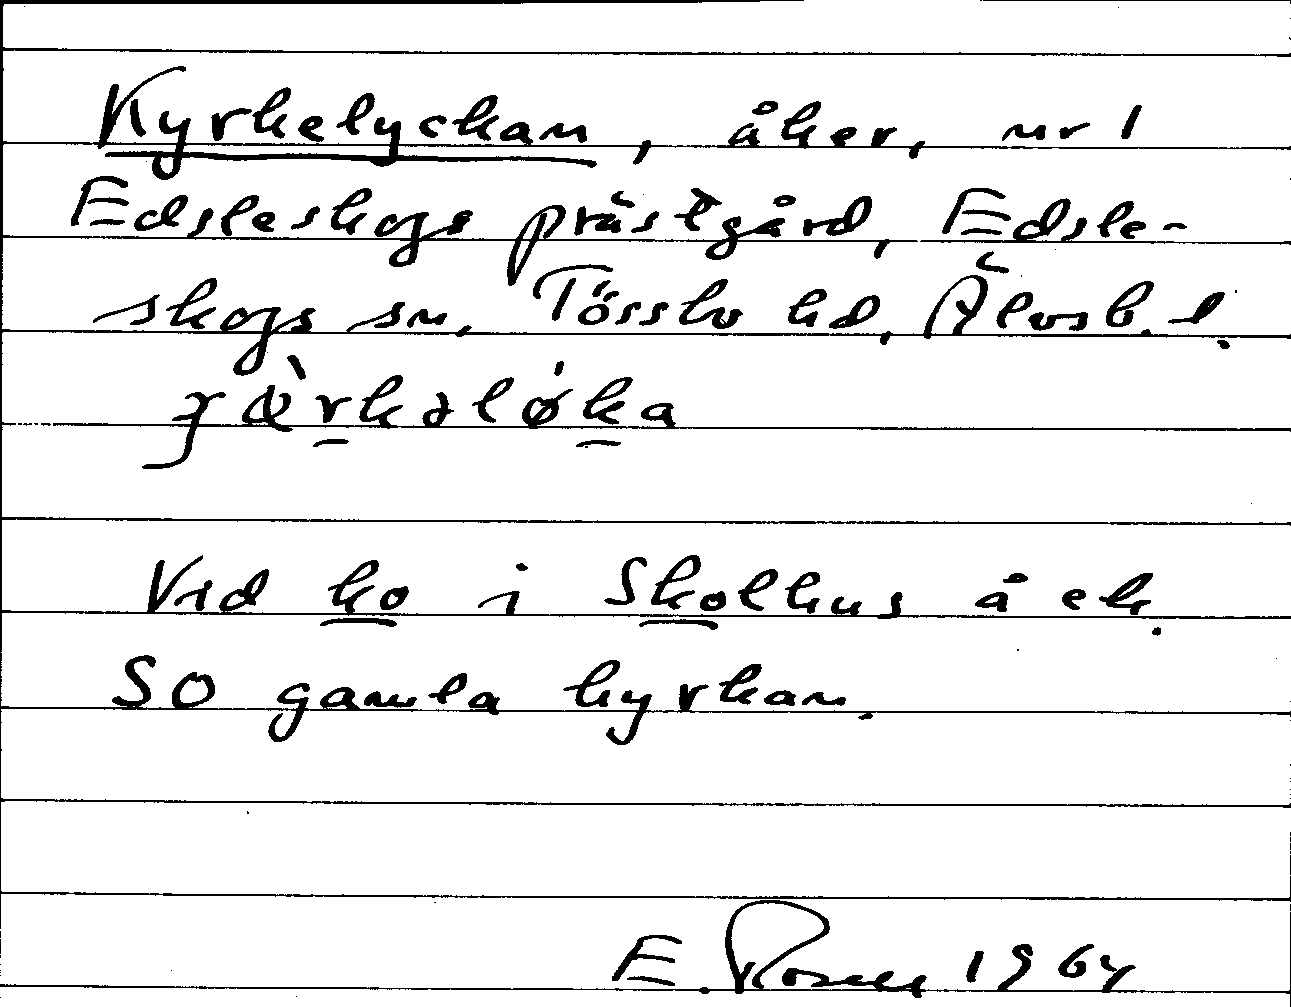 Kyrkelyckan, åker, nr 1
Edsleskogs prästgård, Edsle-
skogs sn, Tössbo hd, Älvsb. l.
Vid ko i Skolhus å ek.
SO gamla kyrkan.
E. Rosell 1964